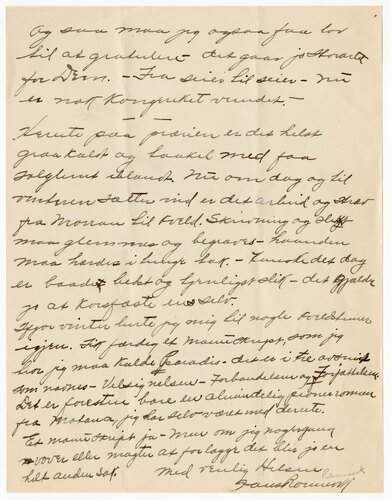 Og saa maa jeg ogsaa faa lov
til at gratulere - det gaar jo storartet
for Dem. - Fra seier til seier - nu
er nok Kongeriket vundet. -
Herute paa prærien er det helst
graakalst og med faa
solglemt iblandt. Nu om dag og til
vinteren sætter ind er det arbeid og stræv
fra Morran til Kveld. Skrivning og sligt
maa glemmes og begraves - haanden
maa hærdes i tak. - Kanske det dag
er baade bedst og slik - det gjælder
jo at korsfæste en selv.
Ifjor vinter lurte jeg mig til nogle kveldstimer
igjen. Fik færdig et manuskript, som jeg
tror jeg maa kalde Paradis - det er i tre avsnit
som nævnes - Velsignelsen - Forbandelsen og Forfattelsen
Det er foresten bare en almindelig pioner roman
fra Motana, jeg har selv været med derute.
Et manuskript ja - Men om jeg nogengang
vover eller magter at forlægge det blir jo en
helt anden sak. Med venlig Hilsen
Hans Rønnevik